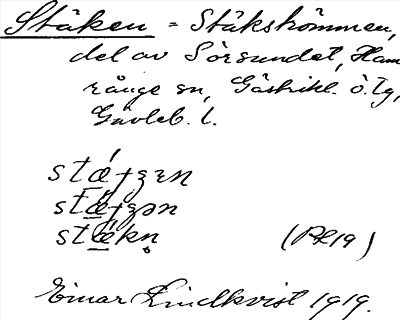 Stäken = Stäkströmmen,
del av Sörsundet, Ham
rånge sn, Gästrikl. ö. tg,
Gävleb. l.
stǽɟʒɛn
stǽɟʒən
stǽkn̥
(PR19)
Einar Lindkvist 1919.